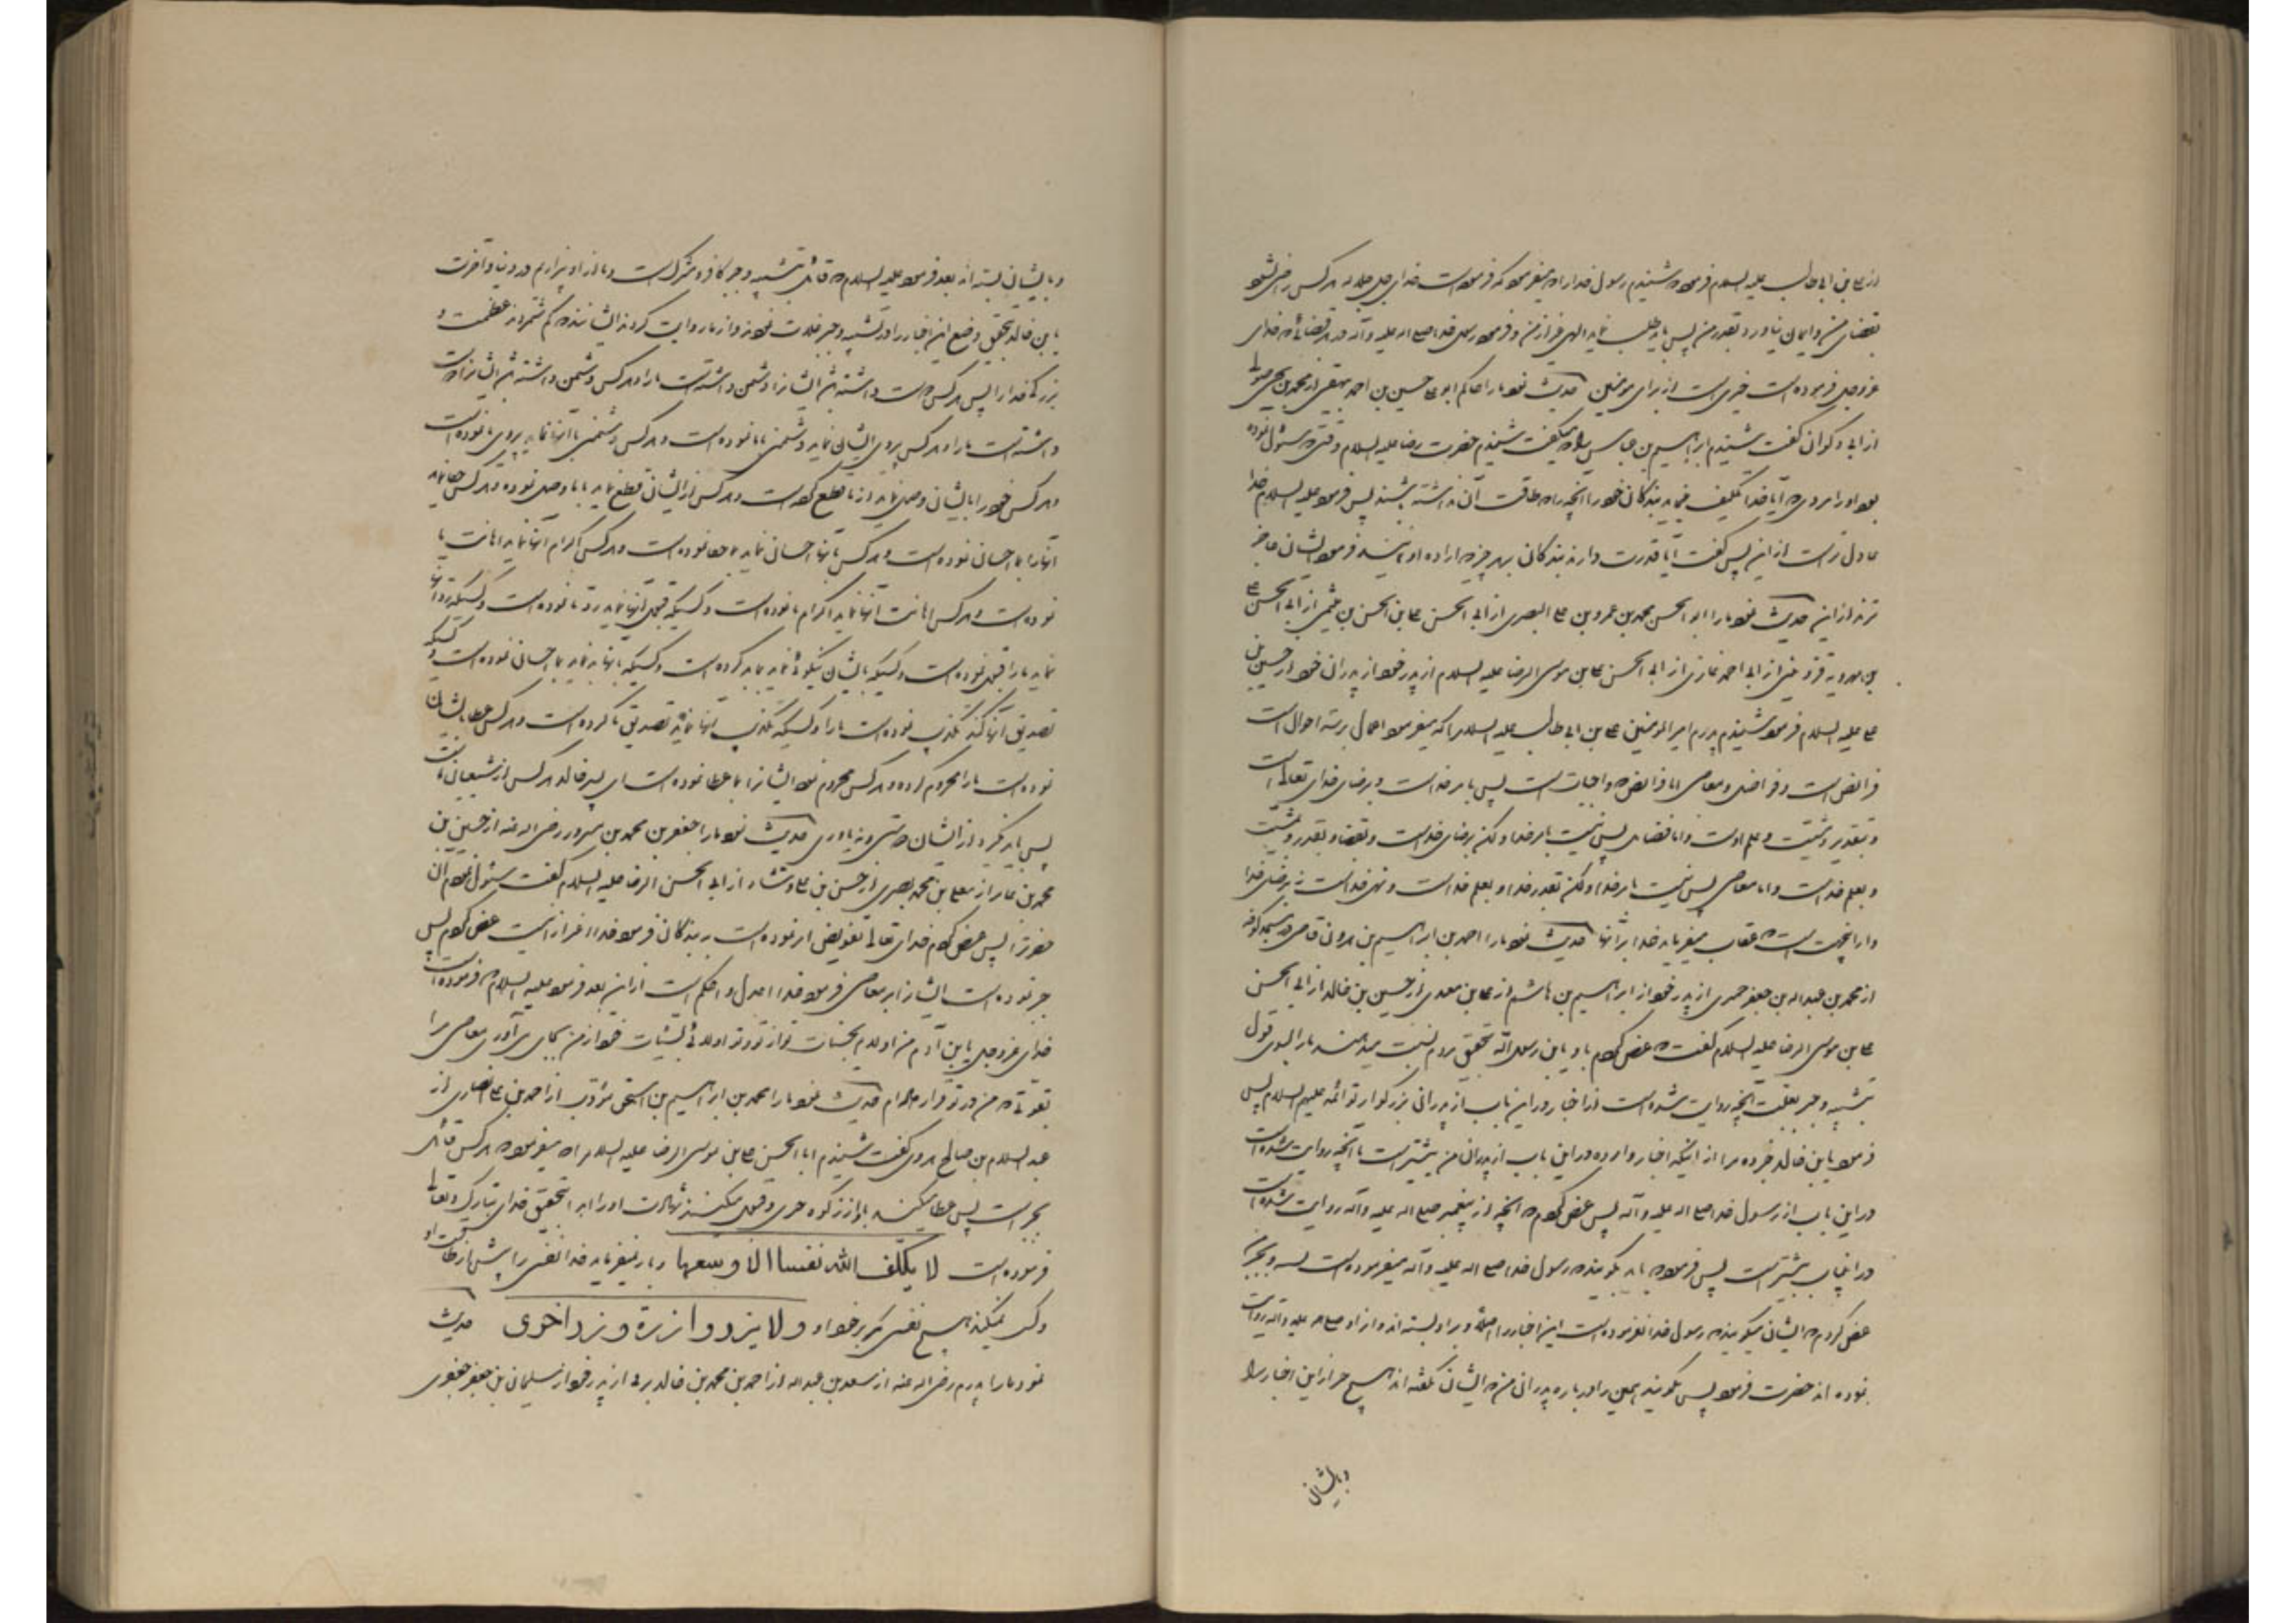 از علی بن ابی طالب علیه السلام فرمود شنیدم رسول خدا را که میفرمود که فرموده است خدای جل جلاله هر کس راضی نشود
بقضای من و ایمان نیاورد بقدر من پس باید طلب نماید الهی غیر از من و فرمود رسول خدا صلی الله علیه و آله در هر قضائی که خدای
عزوجل فرموده است خیری است از برای مومنین حدیث نمود ما را حاکم ابو علی حسین بن احمد بیهقی از محمد بن یحیی صولی
از ابی ذکوان گفت شنیدم ابراهیم بن عباس را که میگفت شنیدم حضرت رضا علیه السلام وقتی که سئوال نموده
بود او را مردی که آیا خدا تکلیف مینماید بندگان خود را آنچه را که طاقت آن نداشته باشند پس فرمود علیه السلام خدا
عادل تر است از این پس گفت آیا قدرت دارند بندگان بهر چیز که اراده او نمایند فرمود ایشان عاجز
ترند از این حدیث نمود ما را ابو الحسن محمد بن عمرو بن علی البصری از ابی الحسن علی بن الحسن بن میثمی از ابی الحسن علی
بن مهرویه قزوینی از ابی احمد غازی از ابی الحسن علی بن موسی الرضا علیه السلام از پدر خود از پدران خود از حسین بن
علی علیه السلام فرمود شنیدم پدرم امیر المومنین علی بن ابی طالب علیه السلام را که میفرمود اعمال بر سه احوال است
فرائض است و فضائل و معاصی اما فرائض که واجبات است پس بامر خدا است و برضای خدای تعالی است
و بتقدیر و مشیت و علم اوست و اما فضائل پس نیست بامر خدا ولکن برضای خداست و بقضا و بقدر و بمشیت
و بعلم خداست و اما معاصی پس نیست بامر خدا ولکن بقدر خدا و بعلم خداست و نهی خداست نه برضای خدا
و از این جهت است که عقاب میفرماید خدا بر آنها حدیث نمود ما را احمد بن ابراهیم بن هرون قاضی در مسجد کوفه
از محمد بن عبدالله بن جعفر حمیری از پدر خود از ابراهیم بن هاشم از علی بن معبد از حسین بن خالد از ابی الحسن
علی بن موسی الرضا علیه السلام گفت که عرض کردم باو یابن رسول الله بتحقیق مردم نسبت میدهند ما را بسوی قول
بتشبیه و جبر بعلت آنچه روایت شده است از اخبار در این باب از پدران بزرگوار تو ائمه علیهم السلام پس
فرمود یابن خالد خبر ده مرا از اینکه اخبار وارده در این باب از پدران من بیشتر است یا آنچه روایت شده است
در این باب از رسول خدا صلی الله علیه و آله پس عرض کردم که آنچه از پیغمبر صلی الله علیه و آله روایت شده است
در اینباب بیشتر است پس فرمود که باید بگویند که رسول خدا صلی الله علیه و آله میفرموده است بتشبیه و بجبر
عرض کردم که ایشان میگویند که رسول خدا نفرموده است این اخبار را اصلا و بر او بسته اند و از او صلی الله علیه و آله روایت
نموده اند حضرت فرمود پس بگویند همین را درباره پدران من که ایشان نگفته اند هیچ حرف از این اخبار را
و بایشان
و بایشان بسته اند بعد فرمود علیه السلام که قائل بتشبیه و جبر کافر و مشرک است و ما از او بیزاریم در دنیا و آخرت
یابن خالد بتحقیق وضع این اخبار را در تشبیه و جبر غلات نمودند و از ما روایت کردند ایشانند که کم شمردند عظمت و
بزرگی خدا را پس هر کس دوست داشته باشد ایشان را دشمن داشته است ما را و هر کس دشمن داشته باشد ایشان را دوست
داشته است ما را و هر کس پیروی ایشان نماید دشمنی با ما نموده است و هر کس دشمنی با آنها نماید پیروی ما نموده است
و هر کس خود را بایشان وصل نماید از ما قطع کرده است و هر کس از ایشان قطع نماید با ما وصل نموده و هر کس جفا نماید
آنها را بما احسان نموده است و هر کس بآنها احسان نماید بما جفا نموده است و هر کس اکرام آنها نماید اهانت ما
نموده است و هر کس اهانت آنها نماید اکرام ما نموده است و کسیکه قبول آنها نماید رد ما نموده است و کسیکه رد آنها
نماید ما را قبول نموده است و کسیکه بایشان نیکوئی نماید بما بد کرده است و کسیکه بآنها بد نماید بما احسان نموده است و کسیکه
تصدیق آنها کند تکذیب نموده است ما را و کسیکه تکذیب آنها نماید تصدیق ما کرده است و هر کس عطا بایشان
نموده است ما را محروم کرده و هر کس محروم نمود ایشان را بما عطا نموده است ای پسر خالد هر کس از شیعیان ماست
پس باید نگیرد از ایشان دوستی و نه یاوری حدیث نمود ما را جعفر بن محمد بن مسرور رضی الله عنه از حسین بن
محمد بن عامر از معلی بن محمد بصری از حسن بن علی وشاء از ابی الحسن الرضا علیه السلام گفت سئوال نمودم آن
حضرت را پس عرض کردم خدای تعالی تفویض امر نموده است به بندگان فرمود خدا اعز از اینست عرض کردم پس
جبر نموده است ایشان را بر معاصی فرمود خدا اعدل و احکم است از این بعد فرمود علیه السلام که فرموده است
خدای عزوجل یابن آدم من اولایم بحسنات تو از تو و تو اولائی بسیئات خود از من بجای می آوری معاصی مرا
بقوتی که من در تو قرار داده ام حدیث نمود ما را محمد بن ابراهیم بن اسحق مؤدب از احمد بن علی انصاری از
عبد السلام بن صالح هروی گفت شنیدم ابا الحسن علی بن موسی الرضا علیه السلام را که میفرمود که هر کس قائل
بجبر است پس عطا میکنید باو از زکوه چیزی و قبول میکنید شهادت او را ابدا بتحقیق خدای تبارک و تعالی
فرموده است لا یکلف الله نفسا الا وسعها و بار نمیفرماید خدا نفس را بیش از طاقت او
و کسب نمیکند هیچ نفس مگر بر خود او ولا یزر وازرة وزر اخری حدیث
نمود ما را پدرم رضی الله عنه از سعد بن عبدالله از احمد بن محمد بن خالد برقی از پدر خود از سلیمان بن جعفر جعفری